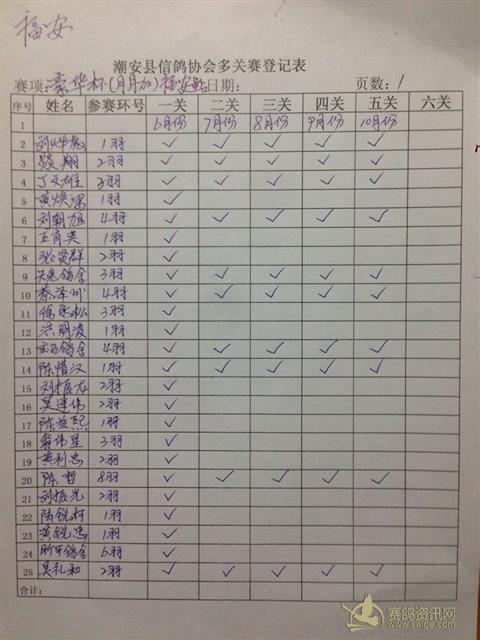 福安
潮安县信鸽协会多关赛登记表
赛项:豪华杯(月月加)福安站日期: 页数:1
序号 姓名 参赛环号 一关 二关 三关 四关 五关 六关
1 6月份 7月份 8月份 9月份 10月份
2 刘烨彪 1羽 ✓ ✓ ✓ ✓ ✓
3 翔 2羽 ✓ ✓ ✓ ✓ ✓
4 丁文雄 3羽 ✓ ✓ ✓ ✓ ✓
5 黄焕 1羽 ✓
6 刘朝旭 4羽 ✓ ✓ ✓ ✓ ✓
7 王育英 1羽 ✓
8 张贤群 2羽 ✓
9 天鬼鸽舍 3羽 ✓ ✓ ✓ ✓ ✓
10 蔡泽州 4羽 ✓ ✓ ✓ ✓ ✓
11 徐 松 3羽 ✓
12 洪明凌 1羽 ✓
13 鸽舍 4羽 ✓ ✓ ✓ ✓ ✓
14 陈惜汉 1羽 ✓ ✓ ✓ ✓ ✓
15 刘振龙 2羽 ✓
16 吴建伟 2羽 ✓
17 陈益熙 1羽 ✓
18 翁伟星 3羽 ✓
19 黄利忠 2羽 ✓
20 陈哲 8羽 ✓ ✓ ✓ ✓ ✓
21 刘振光 2羽 ✓
22 陆锐柯 1羽 ✓
23 黄锐忠 1羽 ✓
24 鸽舍 6羽 ✓
25 吴礼和 2羽 ✓ ✓ ✓ ✓ ✓
合计:
赛鸽资讯网
www.saige.com